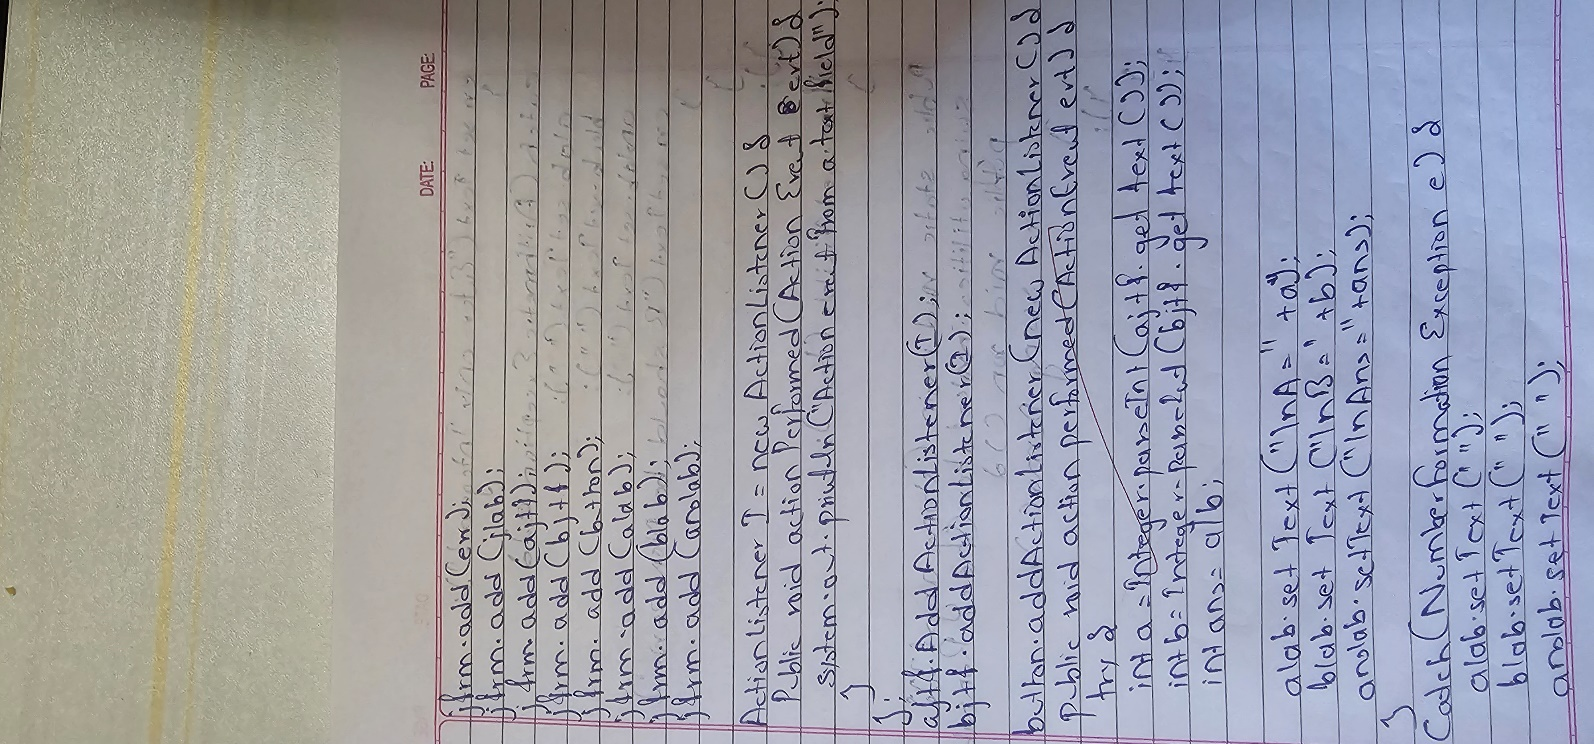 DATE: PAGE:
jfrm.add(err);
jfrm.add(jlab);
jfrm.add(ajtf);
jfrm.add(bjtf);
jfrm.add(button);
jfrm.add(alab);
jfrm.add(blab);
jfrm.add(anslab);
ActionListener I = new ActionListener(){
Public void action Performed(Action Event evt){
System.out.println("Action event from a text field");
}
};
ajtf.Add ActionListener(I);
bjtf.addActionListener(I);
button.addActionListener(new ActionListener(){
Public void action performed(ActionEvent evt){
try {
int a = Integer.parseInt(ajtf.get text());
int b = Integer.ParseInt(bjtf.get text());
int ans = a/b;
alab.set Text("\nA=" +a);
blab.set Text("\nB=" +b);
anslab.setText("\nAns=" +ans);
}
Catch(Number Formation Exception e){
alab.setText(" ");
blab.setText(" ");
anslab.set Text(" ");